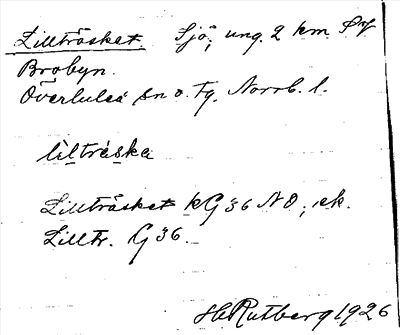 Lillträsket. Sjö, ung. 2 km. Ö af
Brobyn.
Överluleå sn o. tg. Norrb. l.
lìlträska
Lillträsket kG 36 NO; ek.
Lilltr. G 36.
HRutberg 1926